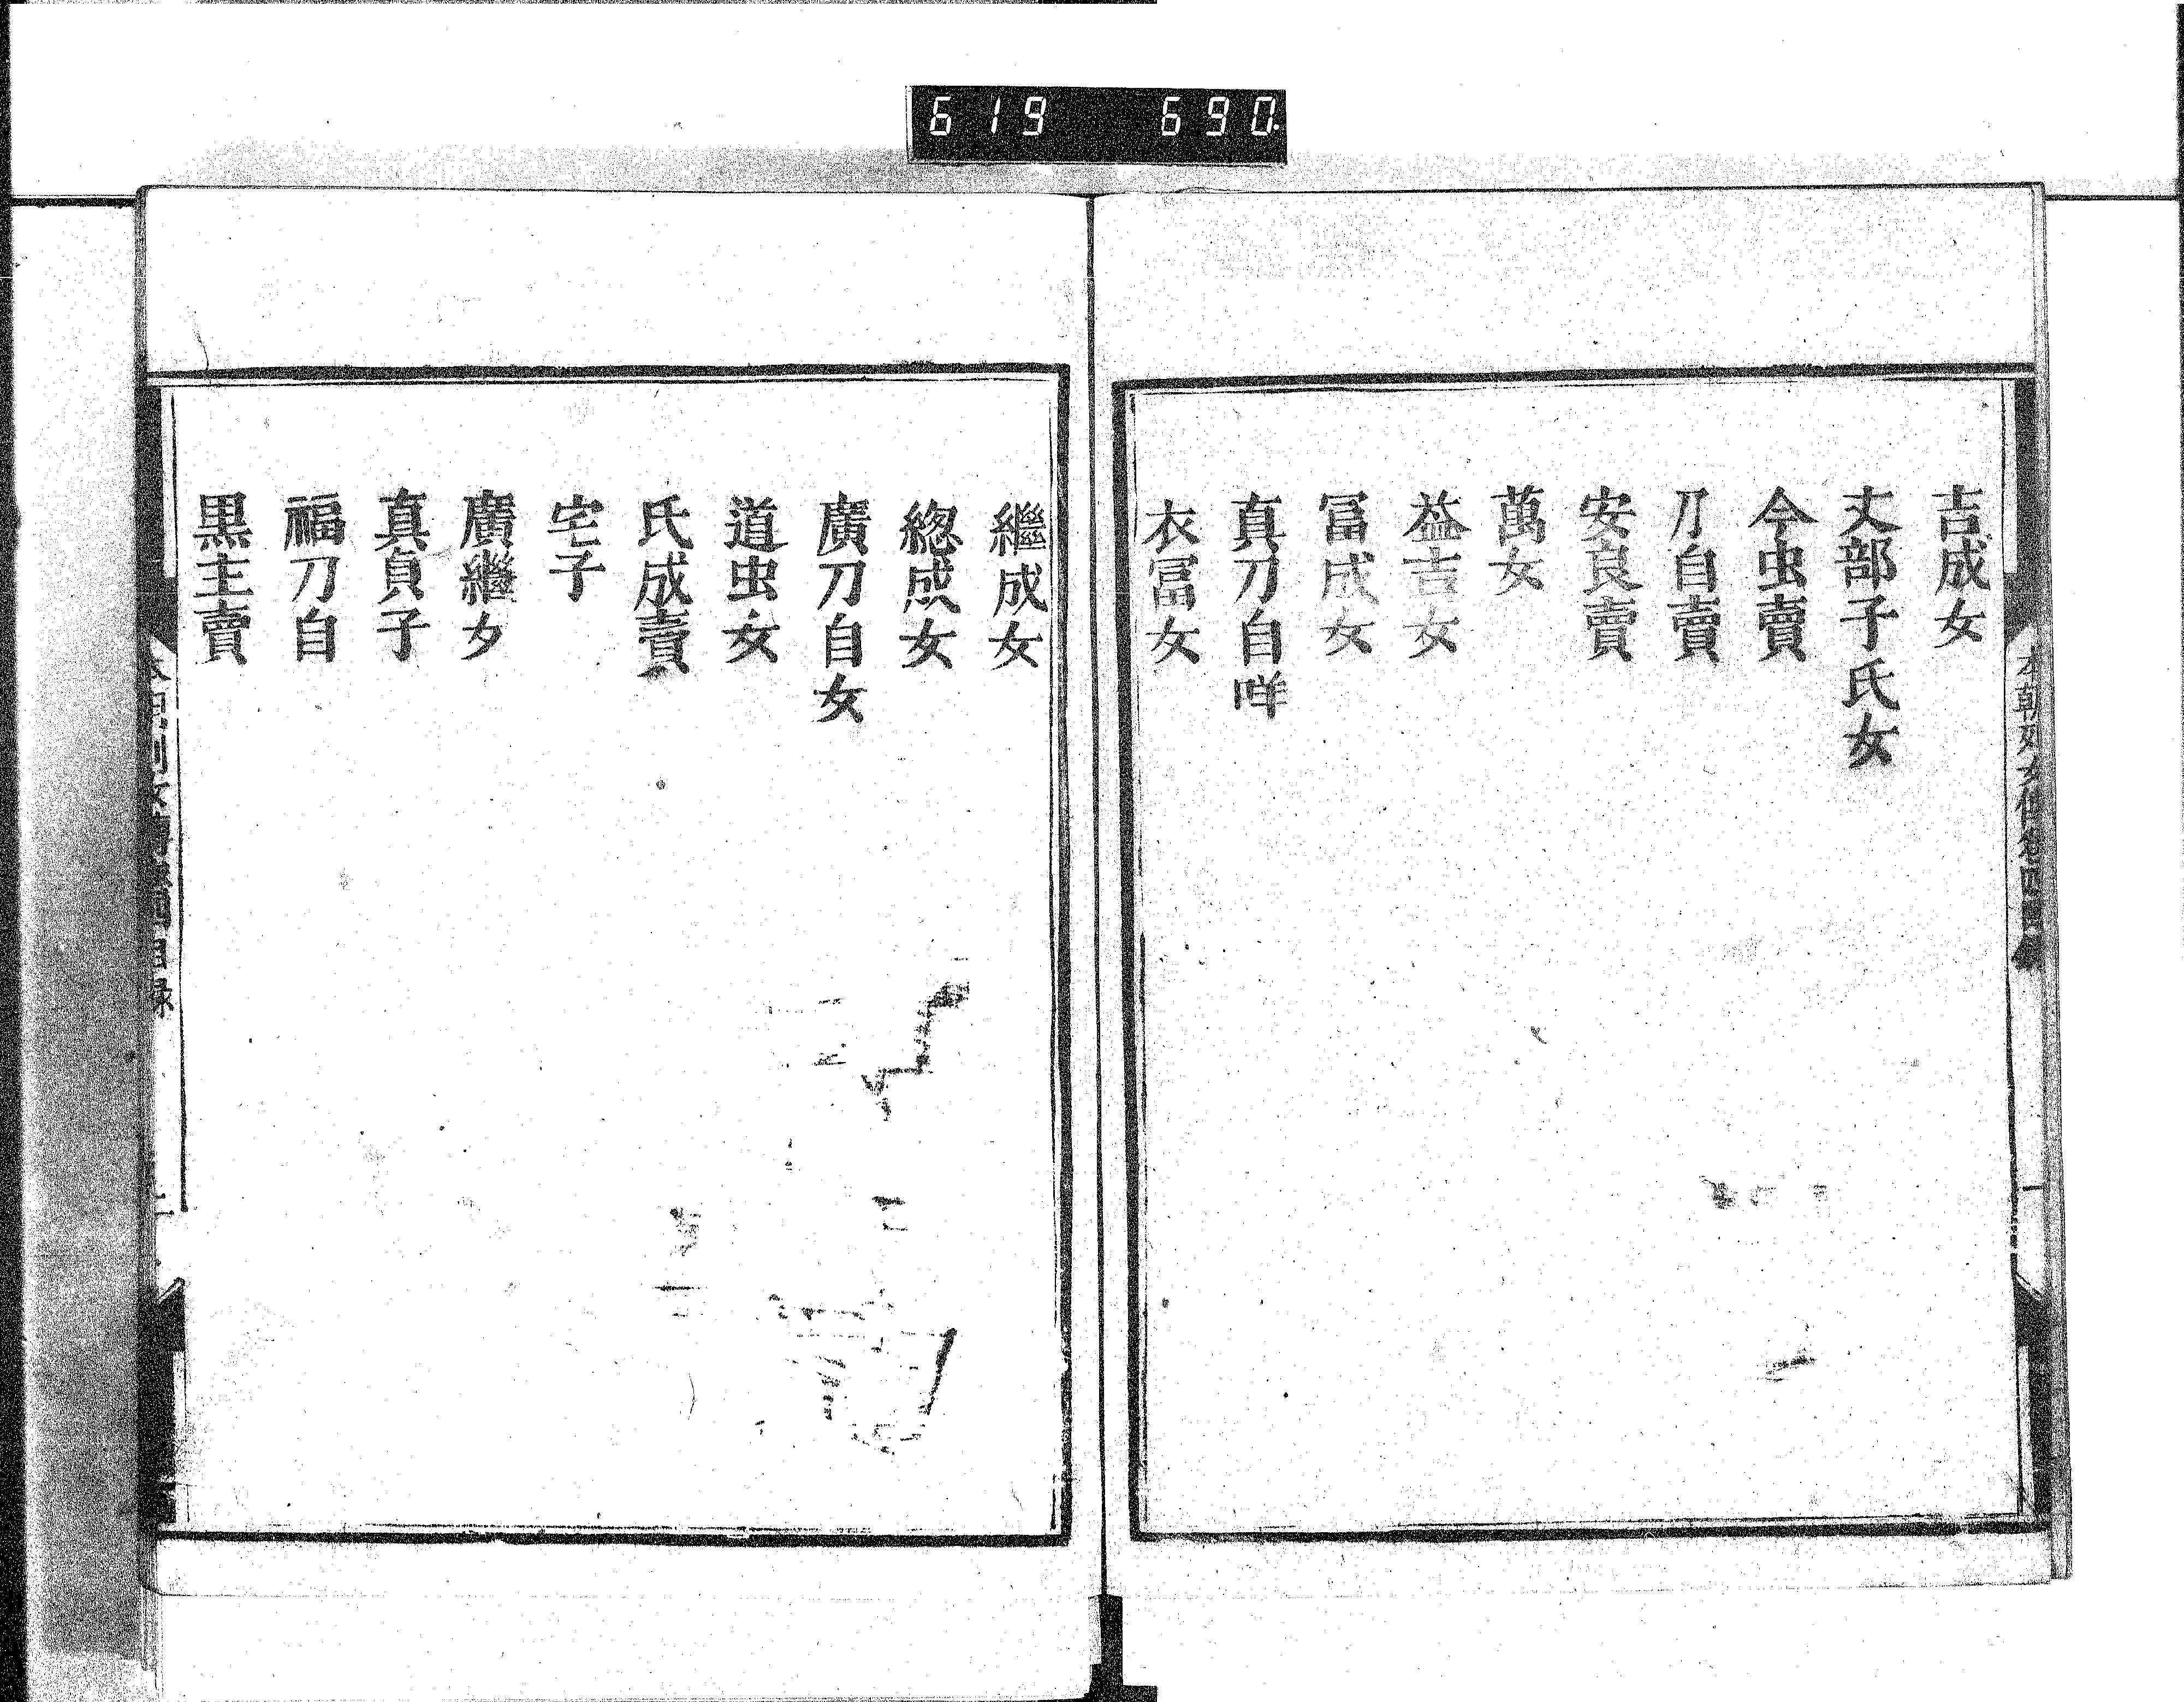 619 690.
本朝列女傳卷四目錄
一
吉成女
丈部子氏女
今虫賣
刀自賣
安良賣
萬女
益吉女
冨成女
真刀自咩
衣冨女
繼成女
總成女
廣刀自女
道虫女
氏成賣
宅子
廣繼女
真貞子
福刀自
黒主賣